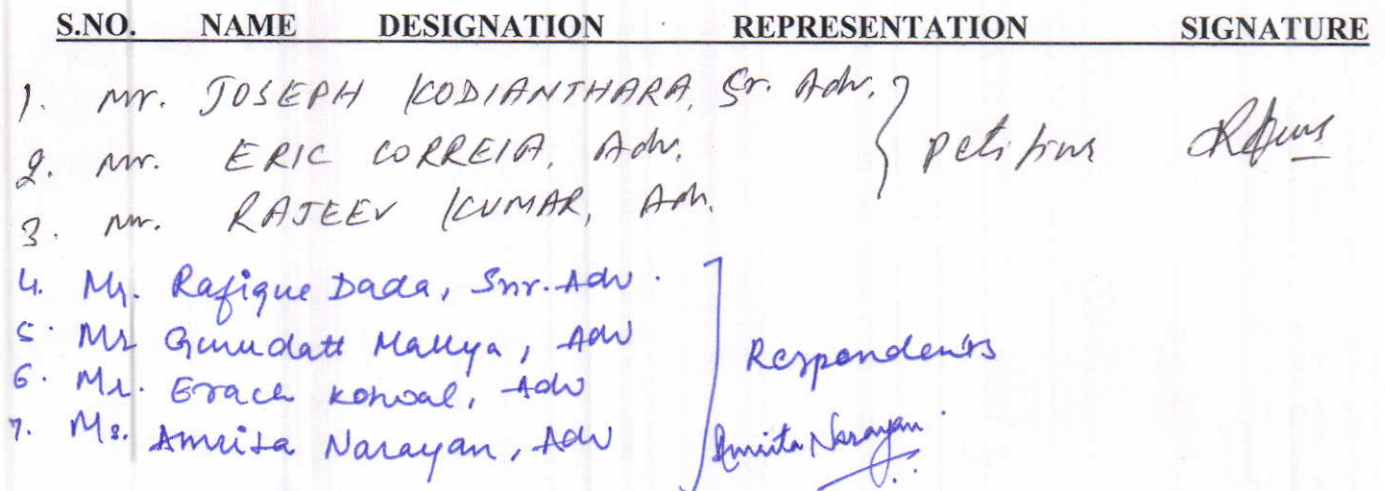 S.NO. NAME DESIGNATION REPRESENTATION SIGNATURE
1. Mr. JOSEPH KODIANTHARA, Sr. Adv.
2. Mr. ERIC CORREIA, Adv. Petitions
3. Mr. RAJEEV KUMAR, Adv.
4. Mr. Rafique Dada, Snr. Adv.
5. Mr Gurudatt Mallya, Adv Respondents
6. Mr. Erach Kotwal, Adv
7. Ms. Amrita Narayan, Adv Amrita Narayan